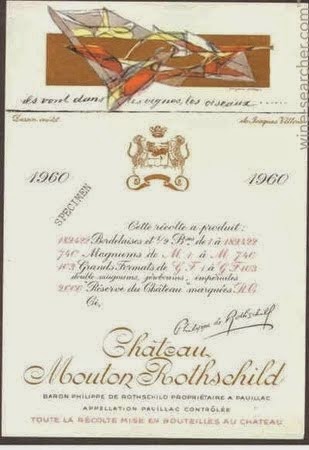 ils vont dans les vignes, les oiseaux ......
Dessin inédit de Jacques Villon
1960 1960
SPECIMEN
Cette récolte a produit:
Bordelaises et 1/2 Blles de 1 à
740 Magnums de M 1 à M 740
103 Grands Formats de G F 1 à G F 103
double magnums, jéroboams, impériales
2000 "Réserve du Château" marquées R.C.
Ci,
Philippe de Rothschild
Château
Mouton Rothschild
BARON PHILIPPE DE ROTHSCHILD PROPRIÉTAIRE A PAUILLAC
APPELLATION PAUILLAC CONTRÔLÉE
TOUTE LA RÉCOLTE MISE EN BOUTEILLES AU CHÂTEAU
winesearcher.com